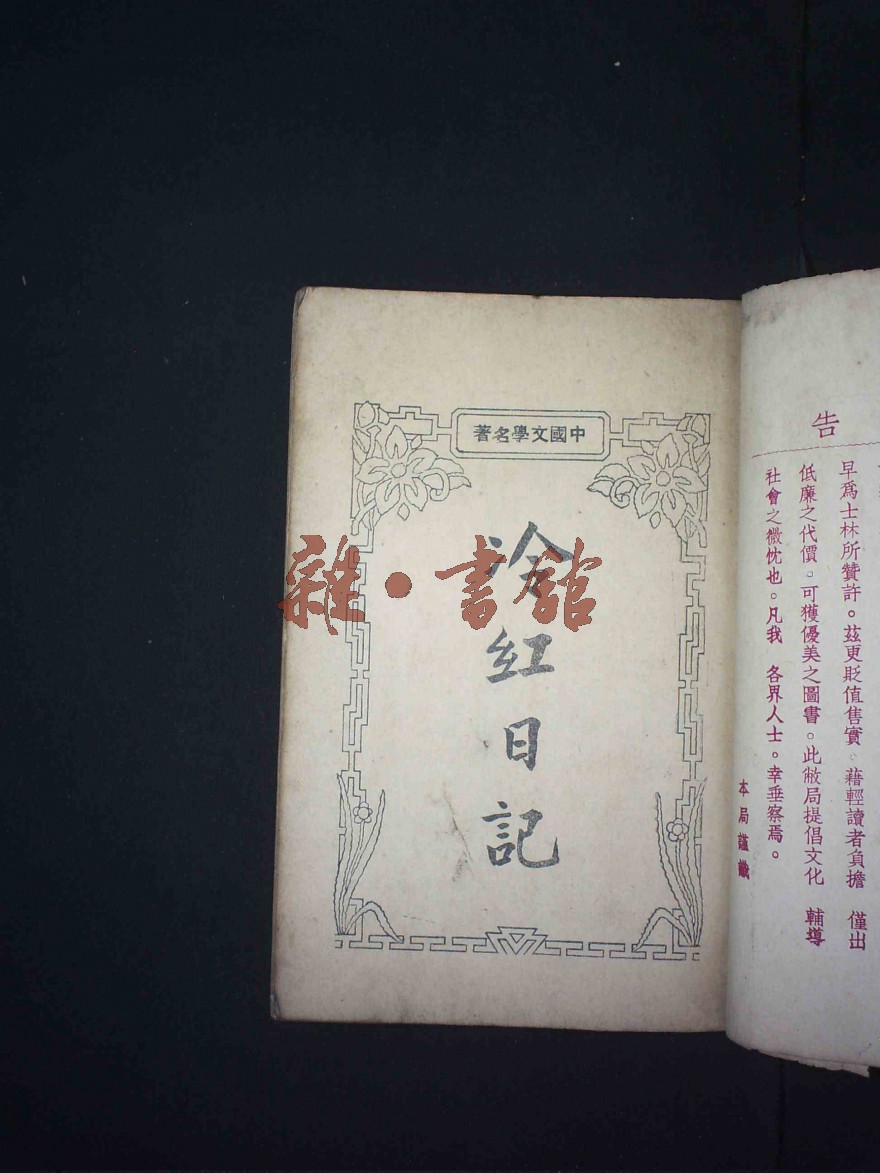 告
早爲士林所贊許。茲更貶值售實。藉輕讀者負擔 僅出
低廉之代價。可獲優美之圖書。此敝局提倡文化 輔導
社會之微忱也。凡我 各界人士。幸垂察焉。
本局謹識
中國文學名著
冷紅日記
雜·書館